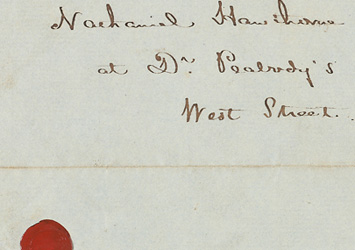 Nathaniel Hawthorne
at Dr. Peabody's
West Street.